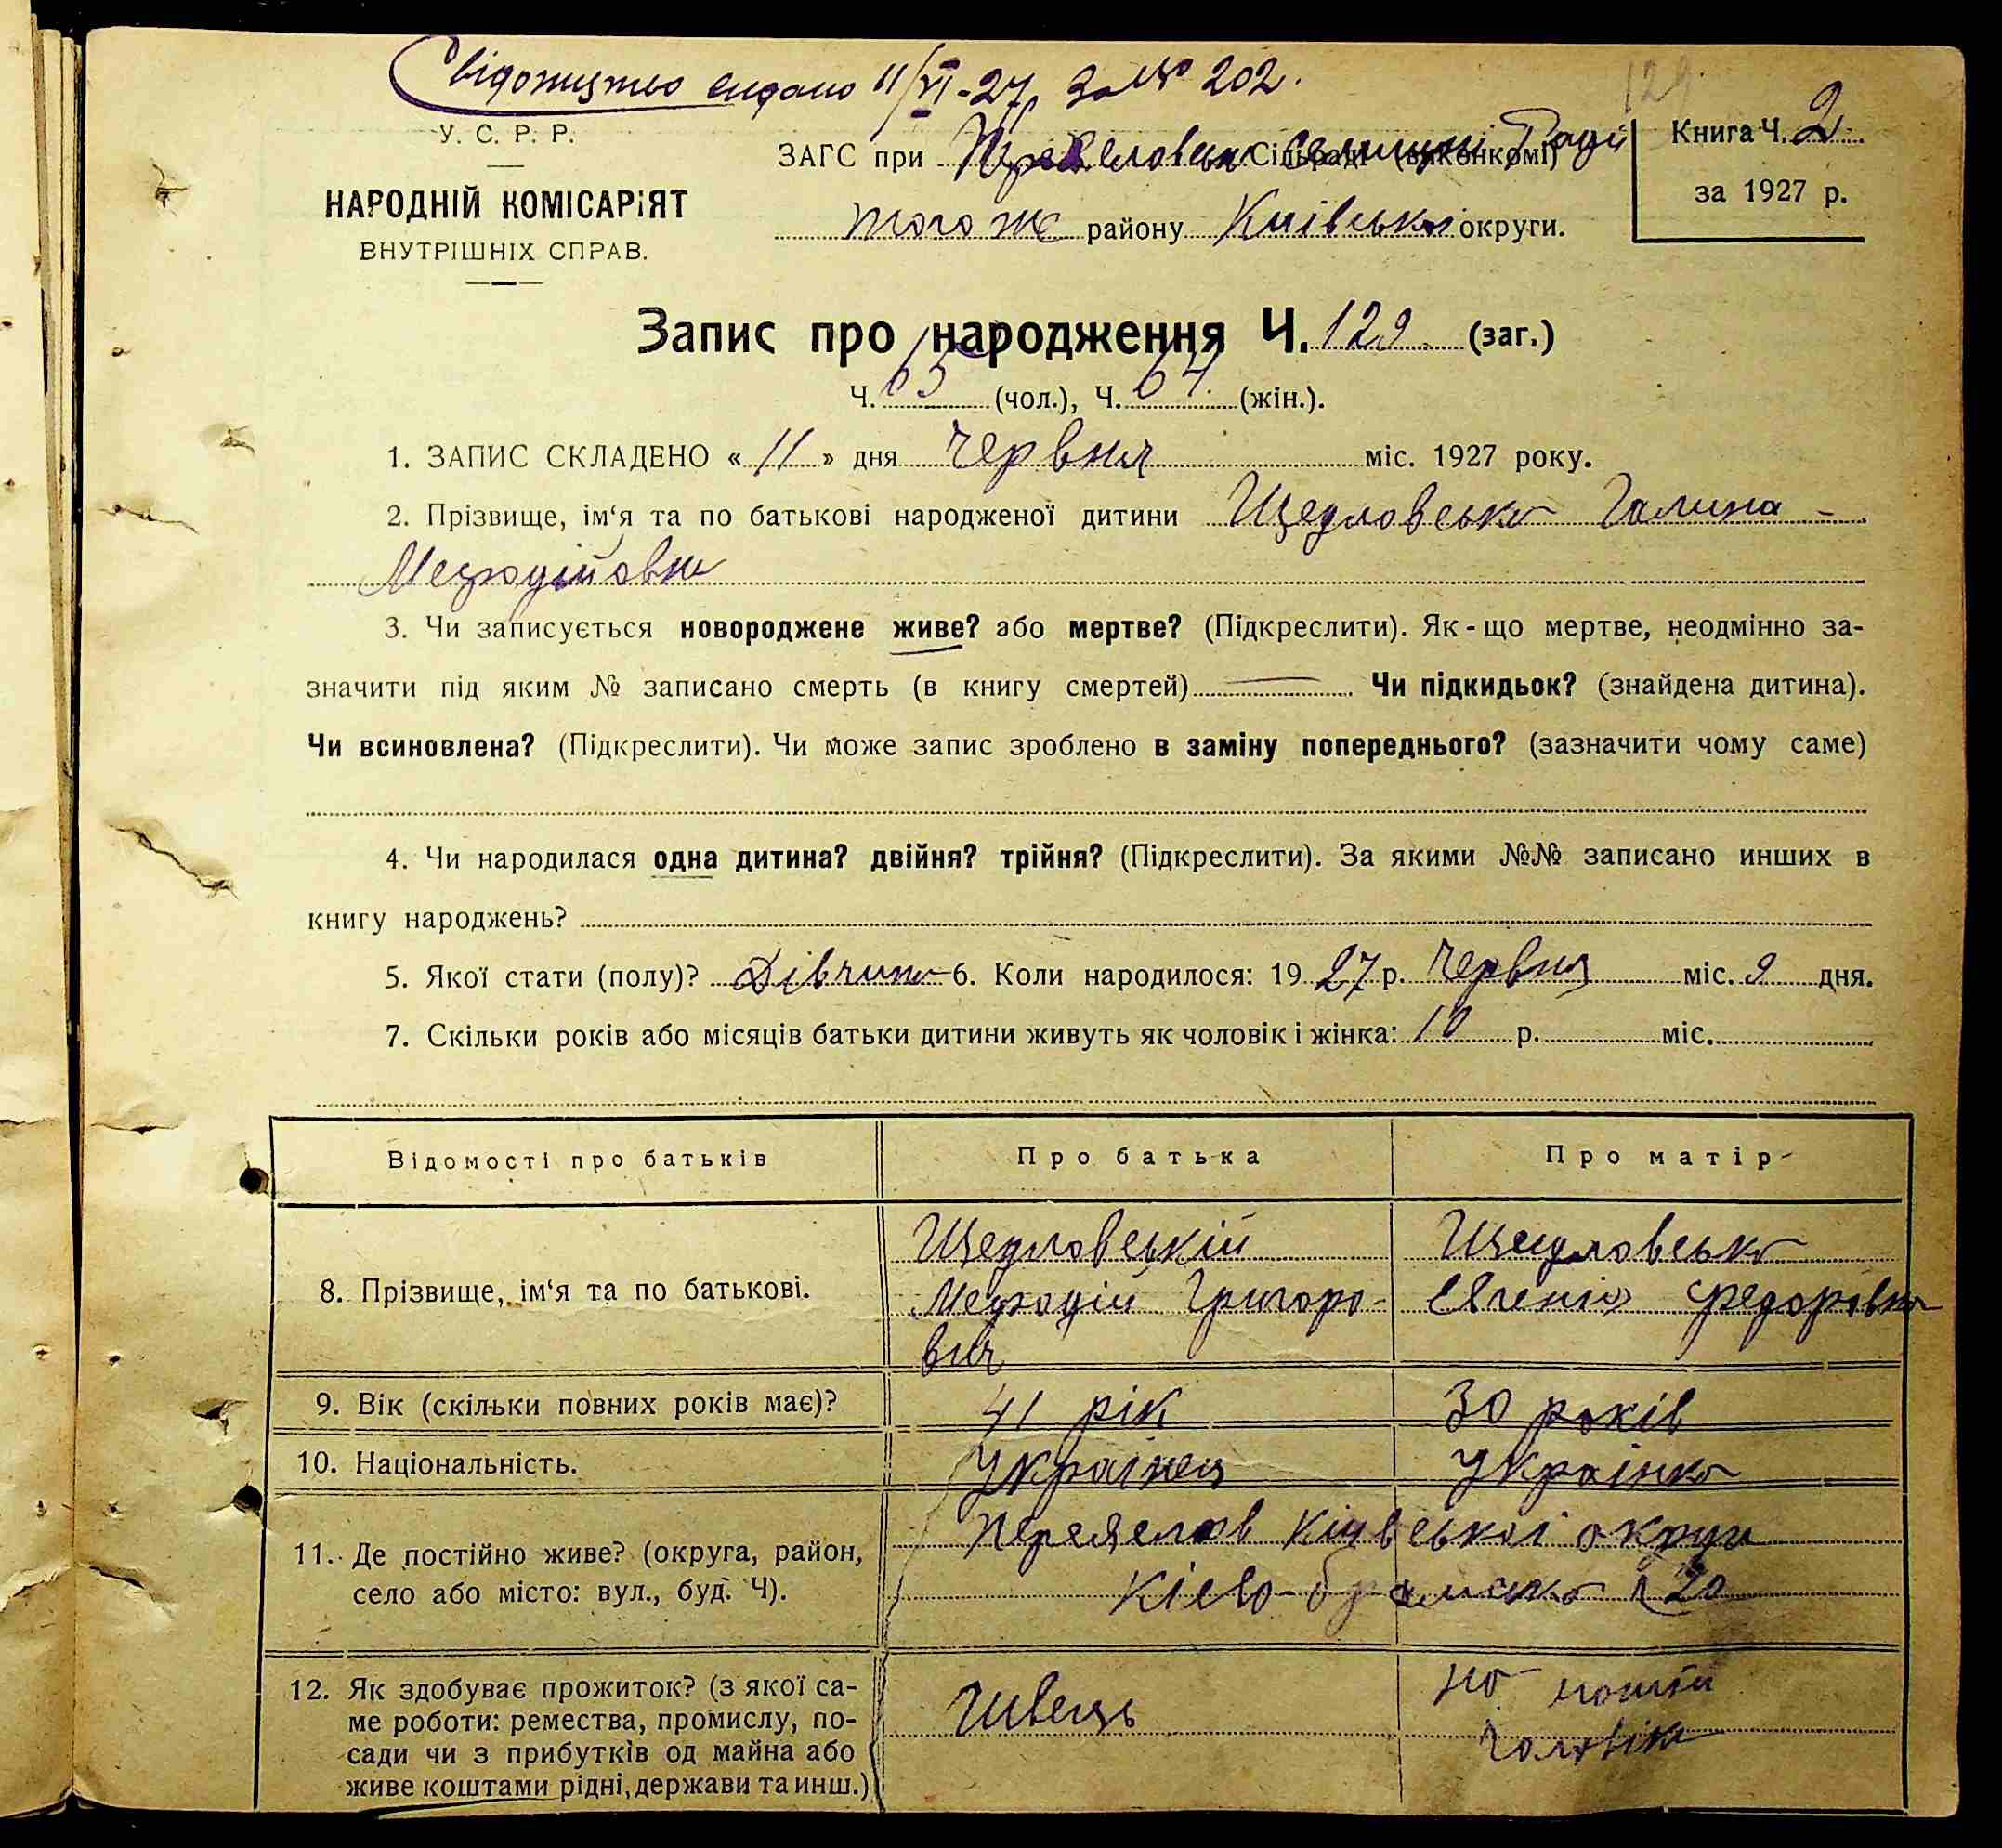 Свідоцтво видано 11/VI-27 за № 202.
129
У. С. Р. Р.
НАРОДНІЙ КОМІСАРІЯТ
ВНУТРІШНІХ СПРАВ.
ЗАГС при Сільраді (виконкомі) Раді
того ж району Київської округи.
Книга Ч. 2
за 1927 р.
Запис про народження Ч. 129 (заг.)
Ч. 65 (чол.), Ч. 64 (жін.).
1. ЗАПИС СКЛАДЕНО « 11 » дня червня міс. 1927 року.
2. Прізвище, ім‘я та по батькові народженої дитини Щедловська Галина -
Мефодійовна
3. Чи записується новороджене живе? або мертве? (Підкреслити). Як-що мертве, неодмінно за-
значити під яким № записано смерть (в книгу смертей) Чи підкидьок? (знайдена дитина).
Чи всиновлена? (Підкреслити). Чи може запис зроблено в заміну попереднього? (зазначити чому саме)
4. Чи народилася одна дитина? двійня? трійня? (Підкреслити). За якими №№ записано инших в
книгу народжень?
5. Якої стати (полу)? Дівчина 6. Коли народилося: 19 27 р. червня міс. 9 дня.
7. Скільки років або місяців батьки дитини живуть як чоловік і жінка: 10 р. міс.
Відомості про батьків Про батька Про матір
8. Прізвище, ім‘я та по батькові.
Щедловській
Мефодій Григоро-
вич
Щедловська
Євгенія Федоровна
9. Вік (скільки повних років має)? 41 рік 30 років
10. Національність. Українец Українка
11. Де постійно живе? (округа, район,
село або місто: вул., буд. Ч).
Переяслов Київської округи
Кієво-брамська 20
12. Як здобуває прожиток? (з якої са-
ме роботи: ремества, промислу, по-
сади чи з прибутків од майна або
живе коштами рідні, держави та инш.)
Швець
на кошти
чоловіка